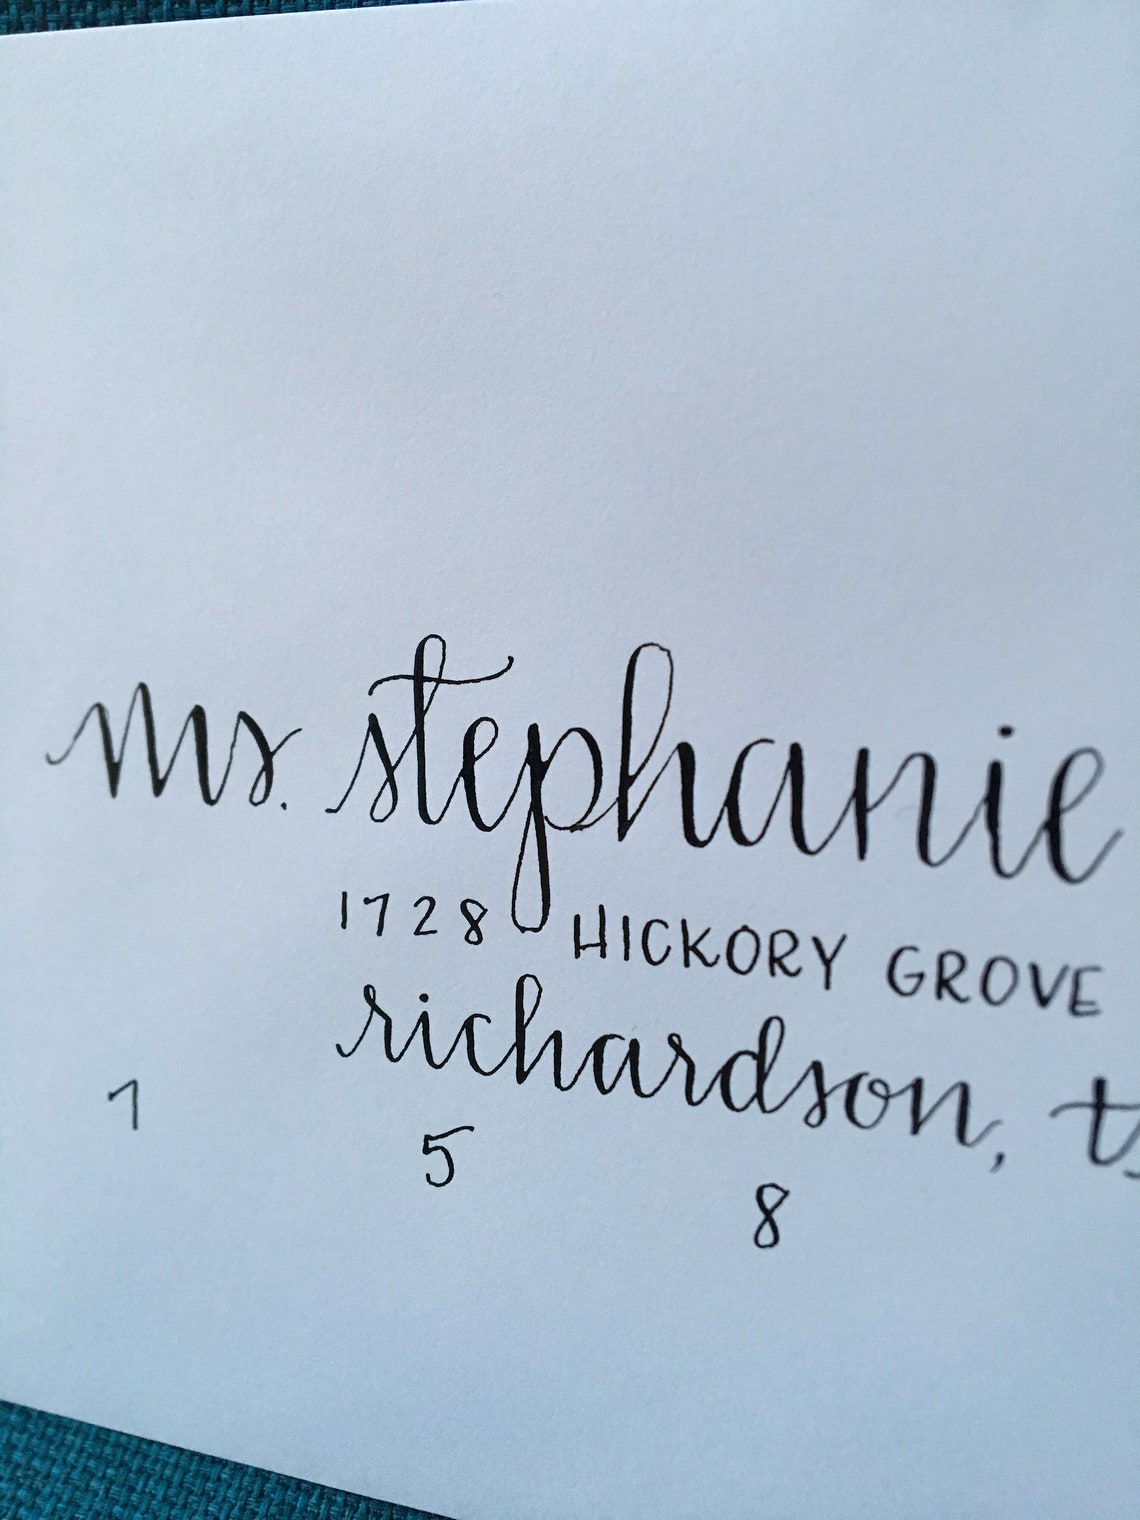 ms. stephanie
1728 HICKORY GROVE
richardson,
7 5 8